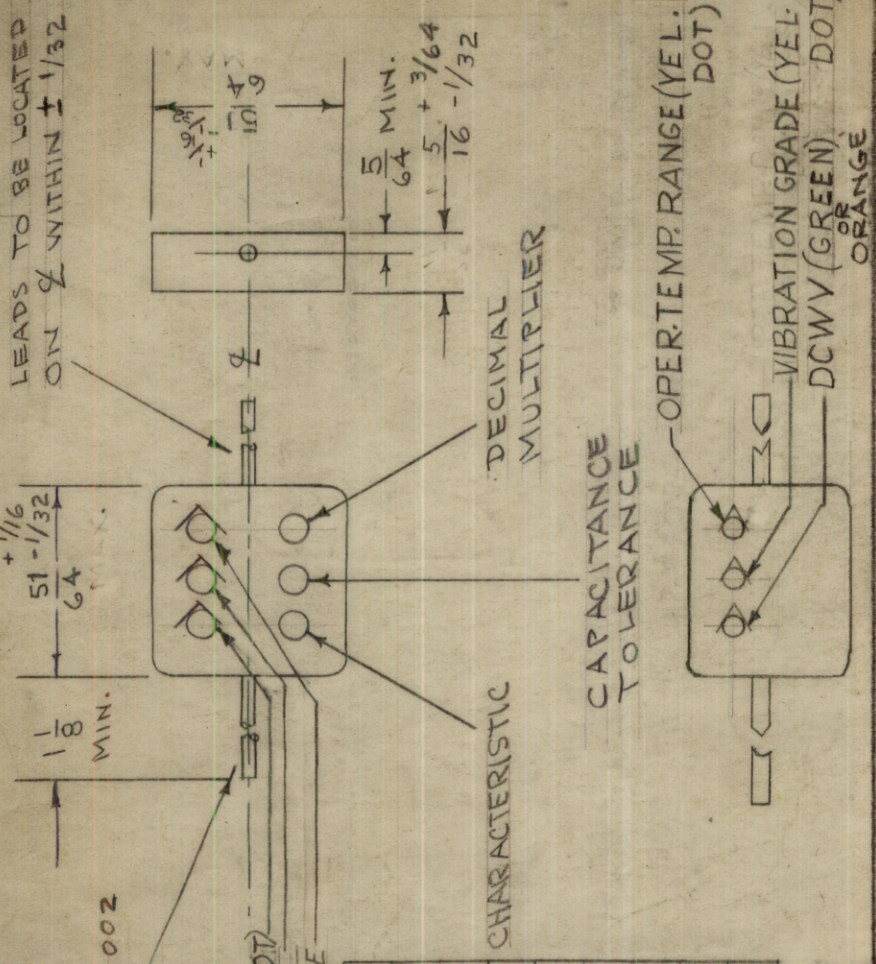 LEADS TO BE LOCATED
ON ℄ WITHIN ± 1/32
+ 1/16
51 - 1/32
64
1 1/8
MIN.
002
5/64 MIN.
5/16 + 3/64 - 1/32
℄
DECIMAL
MULTIPLIER
CAPACITANCE
TOLERANCE
CHARACTERISTIC
OPER. TEMP. RANGE (YEL.
DOT)
VIBRATION GRADE (YEL.
DOT)
DCWV (GREEN)
OR
ORANGE
OT)
E